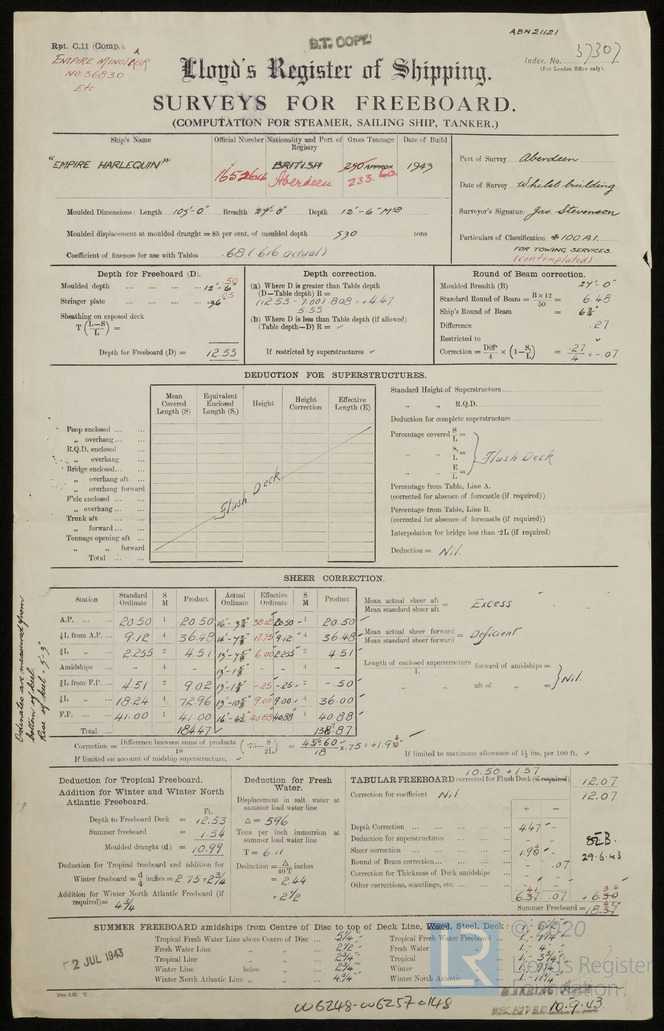 ABN 21121
Rpt. C.11 (Comp.).
B.T. COPY.
EMPIRE MINOTAUR
No 36830
Etc
Index. No. 37307
(For London Office only).
Lloyd's Register of Shipping.
SURVEYS FOR FREEBOARD.
(COMPUTATION FOR STEAMER, SAILING SHIP, TANKER.)
Ship's Name Official Number Nationality and Port of Registry Gross Tonnage Date of Build
"EMPIRE HARLEQUIN" 165264 BRITISH Aberdeen 250 APPROX 233.60 1943
Port of Survey Aberdeen
Date of Survey Whilst building
Surveyor's Signature Jas Stevenson
Particulars of Classification ✠100 A.1.
FOR TOWING SERVICES
(contemplated)
Moulded Dimensions: Length 105'-0" Breadth 27'-0" Depth 12'-6" Mld
Moulded displacement at moulded draught = 85 per cent. of moulded depth 530 tons
Coefficient of fineness for use with Tables .68 (.616 actual)
Depth for Freeboard (D).
Moulded depth 12'-6" .50
Stringer plate .36 .03
Sheathing on exposed deck
T (L-S / L) =
Depth for Freeboard (D) = 12.53
Depth correction.
(a) Where D is greater than Table depth
(D—Table depth) R =
(12.53 - 7.00) .808 = +4.47
5.53
(b) Where D is less than Table depth (if allowed)
(Table depth—D) R =
If restricted by superstructures
Round of Beam correction.
Moulded Breadth (B) 27'-0"
Standard Round of Beam = B×12 / 50 = 6.48
Ship's Round of Beam = 6¾"
Difference .27
Restricted to
Correction = Diff / 4 × (1 - S₁ / L) = .27 / 4 = -.07
DEDUCTION FOR SUPERSTRUCTURES.
Mean Covered Length (S) Equivalent Enclosed Length (S₁) Height Height Correction Effective Length (E)
Poop enclosed
„ overhang
R.Q.D. enclosed
„ overhang
Bridge enclosed
„ overhang aft
„ overhang forward
F'cle enclosed
„ overhang
Trunk aft
„ forward
Tonnage opening aft
„ „ forward
Total
Flush Deck
Standard Height of Superstructure
„ „ R.Q.D.
Deduction for complete superstructure
Percentage covered S / L =
„ „ S₁ / L =
„ „ E / L =
Flush Deck
Percentage from Table, Line A.
(corrected for absence of forecastle (if required))
Percentage from Table, Line B.
(corrected for absence of forecastle (if required))
Interpolation for bridge less than ·2L (if required)
Deduction = Nil.
SHEER CORRECTION.
Station Standard Ordinate S M Product Actual Ordinate Effective Ordinate S M Product
A.P. 20.50 1 20.50 20.50 1 20.50
¼L from A.P. 9.12 4 36.48 9.12 4 36.48
⅓L „ 2.255 2 4.51 6.00 2.255 2 4.51
Amidships - 4 - - 4 -
⅓L from F.P. 4.51 2 9.02 -.25 2 -.50
¼L „ 18.24 4 72.96 9.00 4 36.00
F.P. 41.00 1 41.00 40.88 1 40.88
Total 184.47
Ordinates are measured from bottom of keel.
Rise of keel = 5'-3"
Mean actual sheer aft / Mean standard sheer aft = Excess
Mean actual sheer forward / Mean standard sheer forward = Deficient
Length of enclosed superstructure / L forward of amidships =
„ aft of „ =
Nil.
Correction = Difference between sums of products / 18 (·75 - S / 2L) = 45.60 / 18 × .75 =
If limited on account of midship superstructure.
If limited to maximum allowance of 1½ ins. per 100 ft.
Deduction for Tropical Freeboard.
Addition for Winter and Winter North Atlantic Freeboard.
Ft.
Depth to Freeboard Deck = 12.53
Summer freeboard = 1.54
Moulded draught (d) = 10.99
Deduction for Tropical freeboard and addition for
Winter freeboard = d / 4 inches = 2.75 = 2¾
Addition for Winter North Atlantic Freeboard (if required) = 4¾
Deduction for Fresh Water.
Displacement in salt water at summer load water line
Δ = 596
Tons per inch immersion at summer load water line
T = 6.11
Deduction = Δ / 40T inches
= 2.44
= 2½
TABULAR FREEBOARD corrected for Flush Deck (if required)
10.50 + 1.57
12.07
Correction for coefficient Nil
12.07
+ -
Depth Correction 4.47 -
Deduction for superstructures - -
Sheer correction
Round of Beam correction - .07
Correction for Thickness of Deck amidships - -
Other corrections, scantlings, etc. - -
29.6.43
Summer Freeboard =
SUMMER FREEBOARD amidships from Centre of Disc to top of Deck Line, Wood, Steel, Deck: 1'- 6½"
Tropical Fresh Water Line above Centre of Disc 5¼"
Fresh Water Line „ „ 2½"
Tropical Line „ „ 2¾"
Winter Line below „ 2¾"
Winter North Atlantic Line „ „ 4¾"
Tropical Fresh Water Freeboard 1'- 1¼"
Fresh Water „ 1'- 4"
Tropical „ 1'- 3¾"
Winter „ 1'- 9¼"
Winter North Atlantic „ 1'- 11¼"
2 JUL 1943
© 2020
LR
Lloyd's Register
Foundation
RECEIVED 10.9.43
006248-006257-0148